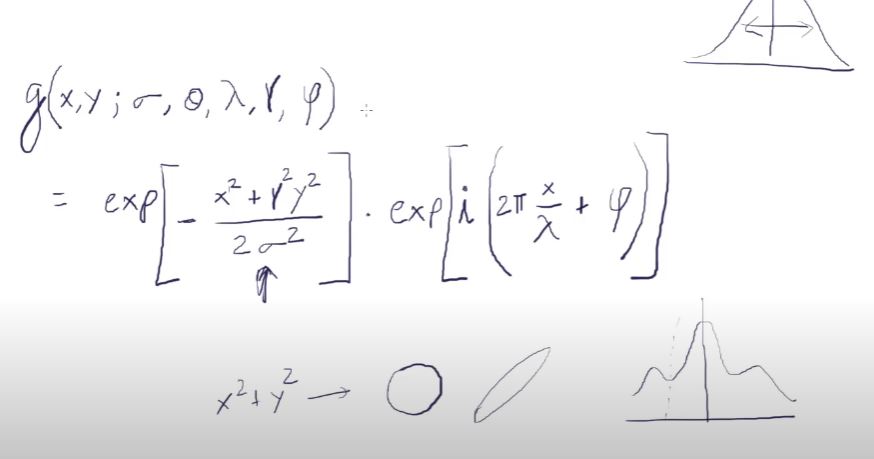 g(x,y; σ, θ, λ, γ, φ)
= exp[- (x² + γ²y²) / (2σ²)] · exp[i(2π x/λ + φ)]
x² + y² →